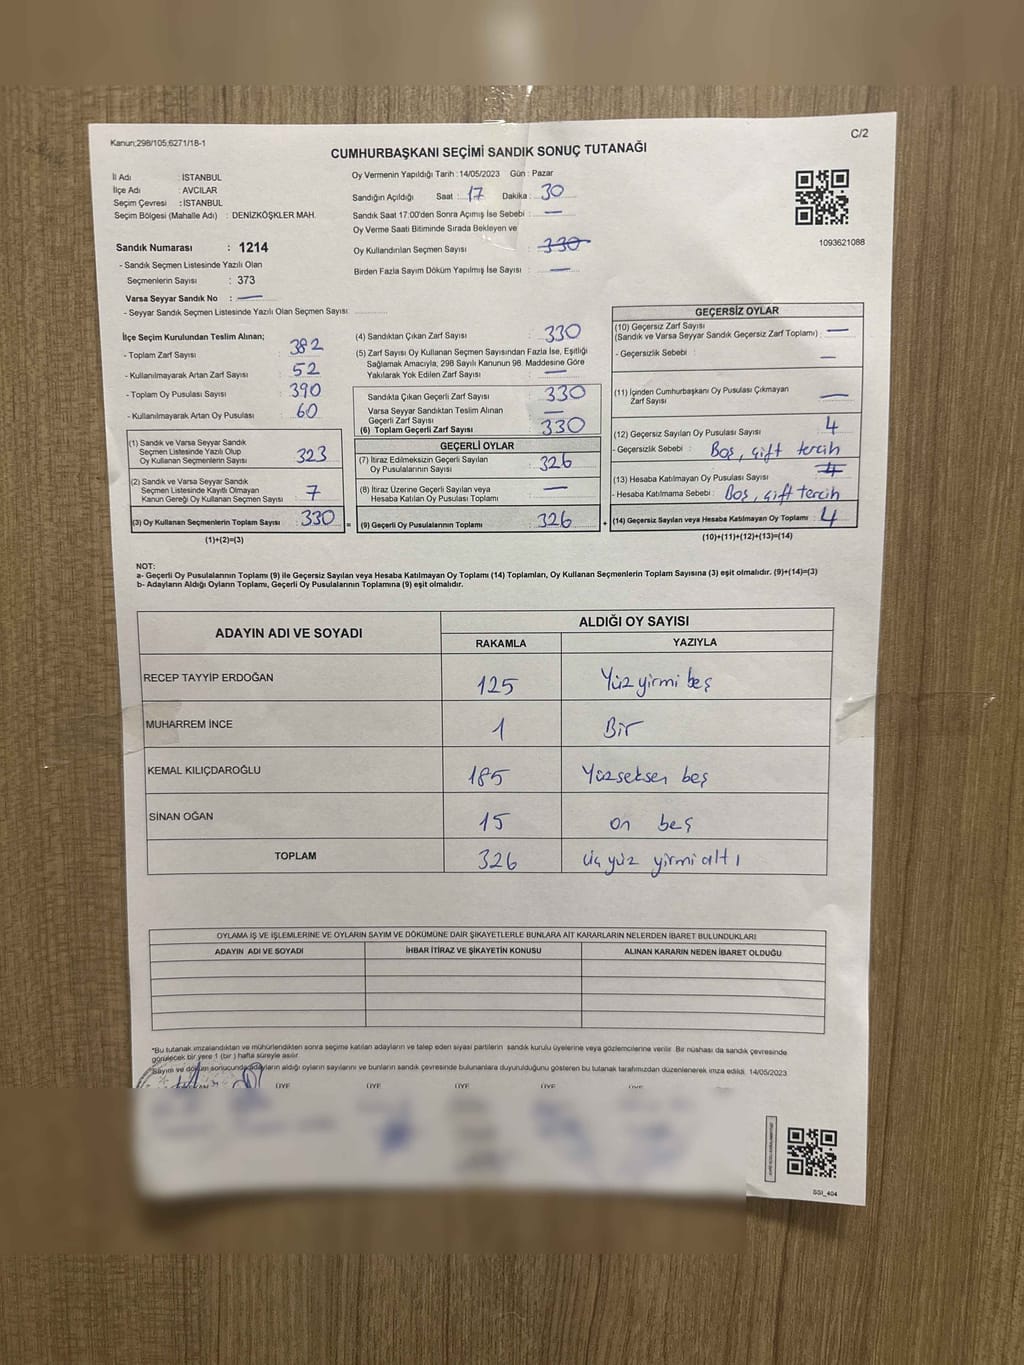 Kanun;298/105;6271/18-1
C/2
CUMHURBAŞKANI SEÇİMİ SANDIK SONUÇ TUTANAĞI
İl Adı : İSTANBUL
İlçe Adı : AVCILAR
Seçim Çevresi : İSTANBUL
Seçim Bölgesi (Mahalle Adı) : DENİZKÖŞKLER MAH.
Sandık Numarası : 1214
- Sandık Seçmen Listesinde Yazılı Olan
Seçmenlerin Sayısı : 373
Varsa Seyyar Sandık No : —
- Seyyar Sandık Seçmen Listesinde Yazılı Olan Seçmen Sayısı
Oy Vermenin Yapıldığı Tarih : 14/05/2023 Gün : Pazar
Sandığın Açıldığı Saat : 17 Dakika : 30
Sandık Saat 17:00'den Sonra Açımış İse Sebebi : —
Oy Verme Saati Bitiminde Sırada Bekleyen ve
Oy Kullandırılan Seçmen Sayısı : 330
Birden Fazla Sayım Döküm Yapılmış İse Sayısı : —
1093621088
İlçe Seçim Kurulundan Teslim Alınan;
- Toplam Zarf Sayısı : 382
- Kullanılmayarak Artan Zarf Sayısı : 52
- Toplam Oy Pusulası : 390
- Kullanılmayarak Artan Oy Pusulası : 60
(1) Sandık ve Varsa Seyyar Sandık
Seçmen Listesinde Yazılı Olup
Oy Kullanan Seçmenlerin Sayısı : 323
(2) Sandık ve Varsa Seyyar Sandık
Seçmen Listesinde Kayıtlı Olmayan
Kanun Gereği Oy Kullanan Seçmen Sayısı : 7
(3) Oy Kullanan Seçmenlerin Toplam Sayısı : 330 =
(1)+(2)=(3)
(4) Sandıktan Çıkan Zarf Sayısı : 330
(5) Zarf Sayısı Oy Kullanan Seçmen Sayısından Fazla İse, Eşitliği
Sağlamak Amacıyla; 298 Sayılı Kanunun 98. Maddesine Göre
Yakılarak Yok Edilen Zarf Sayısı : —
Sandıkta Çıkan Geçerli Zarf Sayısı : 330
Varsa Seyyar Sandıktan Teslim Alınan
Geçerli Zarf Sayısı : —
(6) Toplam Geçerli Zarf Sayısı : 330
GEÇERLİ OYLAR
(7) İtiraz Edilmeksizin Geçerli Sayılan
Oy Pusulalarının Sayısı : 326
(8) İtiraz Üzerine Geçerli Sayılan veya
Hesaba Katılan Oy Pusulası Toplamı : —
(9) Geçerli Oy Pusulalarının Toplamı : 326 +
GEÇERSİZ OYLAR
(10) Geçersiz Zarf Sayısı
(Sandık ve Varsa Seyyar Sandık Geçersiz Zarf Toplamı) : —
- Geçersizlik Sebebi : —
(11) İçinden Cumhurbaşkanı Oy Pusulası Çıkmayan
Zarf Sayısı : —
(12) Geçersiz Sayılan Oy Pusulası Sayısı : 4
- Geçersizlik Sebebi : Boş, çift tercih
(13) Hesaba Katılmayan Oy Pusulası Sayısı : 4
- Hesaba Katılmama Sebebi : Boş, çift tercih
(14) Geçersiz Sayılan veya Hesaba Katılmayan Oy Toplamı : 4
(10)+(11)+(12)+(13)=(14)
NOT:
a- Geçerli Oy Pusulalarının Toplamı (9) ile Geçersiz Sayılan veya Hesaba Katılmayan Oy Toplamı (14) Toplamları, Oy Kullanan Seçmenlerin Toplam Sayısına (3) eşit olmalıdır. (9)+(14)=(3)
b- Adayların Aldığı Oyların Toplamı, Geçerli Oy Pusulalarının Toplamına (9) eşit olmalıdır.
ADAYIN ADI VE SOYADI
ALDIĞI OY SAYISI
RAKAMLA YAZIYLA
RECEP TAYYİP ERDOĞAN 125 Yüz yirmi beş
MUHARREM İNCE 1 Bir
KEMAL KILIÇDAROĞLU 185 Yüzseksen beş
SİNAN OĞAN 15 on beş
TOPLAM 326 üç yüz yirmi altı
OYLAMA İŞ VE İŞLEMLERİNE VE OYLARIN SAYIM VE DÖKÜMÜNE DAİR ŞİKAYETLERLE BUNLARA AİT KARARLARIN NELERDEN İBARET BULUNDUKLARI
ADAYIN ADI VE SOYADI İHBAR İTİRAZ VE ŞİKAYETİN KONUSU ALINAN KARARIN NEDEN İBARET OLDUĞU
*Bu tutanak imzalandıktan ve mühürlendikten sonra seçime katılan adayların ve talep eden siyasi partilerin sandık kurulu üyelerine veya gözlemcilerine verilir. Bir nüshası da sandık çevresinde
görülecek bir yere 1 (bir ) hafta süreyle asılır.
*Sayım ve döküm sonucunda adayların aldığı oyların sayılarını ve bunların sandık çevresinde bulunanlara duyurulduğunu gösteren bu tutanak tarafımızdan düzenlenerek imza edildi. 14/05/2023
ÜYE ÜYE ÜYE ÜYE ÜYE
SSI_404